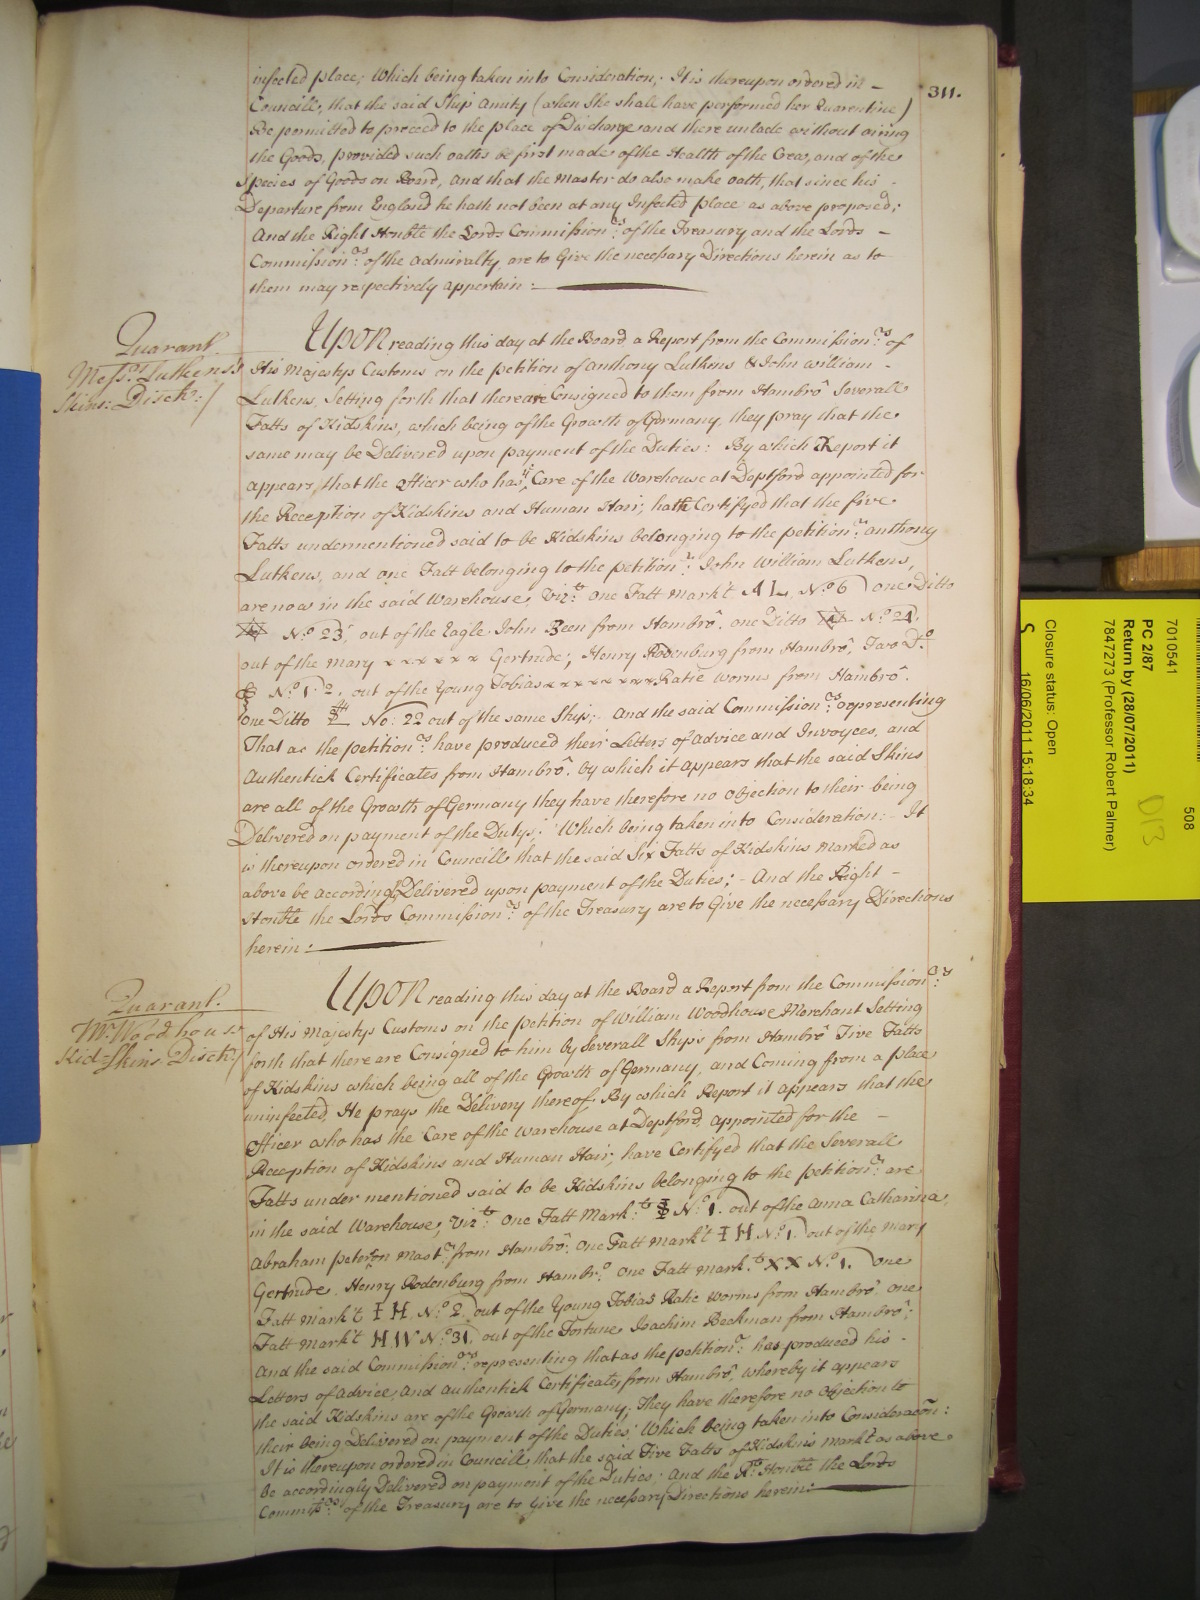 311.
infected place; Which being taken into Consideration; It is thereupon ordered in –
Councill, that the said Ship Amity (when She shall have performed her Quarentine)
Be permitted to proceed to the place of Discharge and there unlade without airing
the Goods, provided such oaths be first made of the Health of the Crew, and of the
Species of Goods on Board, and that the Master do also make oath, that since his
Departure from England he hath not been at any Infected place as above proposed;
And the Right Honble the Lords Commission.rs of the Treasury and the Lords –
Commission.rs of the Admiralty are to Give the necessary Directions herein as to
them may respectively appertain:
Quarant.
Mess.rs Lutkens's
Skins: Disch:/
Upon reading this day at the Board a Report from the Commission.rs of
His Majestys Customs on the petition of Anthony Lutkens & John William –
Lutkens, Setting forth that there are Consigned to them from Hambrô Severall
Fatts of Kidskins, which being of the Growth of Germany, they pray that the
same may be Delivered upon payment of the Duties: By which Report it
appears, that the officer who has ye Care of the Warehouse at Deptford appointed for
the Reception of Kidskins and Human Hair, hath Certifyed that the five
Fatts undermentioned said to be Kidskins belonging to the petition.r Anthony
Lutkens, and one Fatt belonging to the petition.r John William Lutkens,
are now in the said Warehouse, Viz.t One Fatt Mark't AL, N.o 6) one Ditto
N.o 23, out of the Eagle John Been from Hambrô. one Ditto N.o 24,
out of the Mary x x x x x x Gertrude, Henry Rodenburg from Hambrô, Two D.o
N.o 1. 2. out of the Young Tobias x x x x x x x x Ratie Worms from Hambrô.
One Ditto No: 22 out of the same Ship; And the said Commission.rs representing
That as the petition.rs have produced their Letters of Advice and Invoyces, and
Authentick Certificates from Hambrô. by which it appears that the said Skins
are all of the Growth of Germany they have therefore no objection to their being
Delivered on payment of the Dutys; Which being taken into Consideration: It
is thereupon ordered in Councill that the said Six Fatts of Kidskins Marked as
above be accordingly Delivered upon payment of the Duties; – And the Right –
Honble the Lords Commission.rs of the Treasury are to Give the necessary Directions
herein:
Quarant.
Mr. Woodhouse
Kid=Skins Disch:/
Upon reading this day at the Board a Report from the Commission.rs
of His Majestys Customs on the petition of William Woodhouse Merchant Setting
forth that there are Consigned to him by Severall Ships from Hambrô Five Fatts
of Kidskins which being all of the Growth of Germany, and Coming from a place
uninfected, He prays the Delivery thereof. By which Report it appears that the
Officer who has the Care of the Warehouse at Deptford, appointed for the –
Reception of Kidskins and Human Hair, have Certifyed that the Severall
Fatts under mentioned said to be Kidskins belonging to the petition.r are
in the said Warehouse, Viz.t One Fatt Mark.t N.o 1. out of the Anna Catharina,
Abraham peterson Mast.r from Hambrô. One Fatt Mark't I H N.o 1. out of the Mary
Gertrude, Henry Rodenburg from Hambr.o One Fatt Mark.t X X N.o 1. One
Fatt Mark't I H. N.o 2. out of the Young Tobias Ratie Worms from Hambrô one
Fatt Mark't H W N.o 31. out of the Fortune Joachim Beckman from Hambrô;
And the said Commission.rs representing that as the petition.r has produced his –
Letters of Advice, And Authentick Certificates from Hambrô, whereby it appears
the said Kidskins are of the Growth of Germany; They have therefore no objection to
their being Delivered on payment of the Duties; Which being taken into Consideracôn:
It is thereupon ordered in Councill, that the said Five Fatts of Kidskins Mark't as above
Be accordingly Delivered on payment of the Duties; And the R.t Honble the Lords
Commiss.rs of the Treasury are to Give the necessary Directions herein:
508
7010541
PC 2/87
Return by (28/07/2011)
7847273 (Professor Robert Palmer)
D13
Closure status: Open
16/06/2011 15:18:34
S